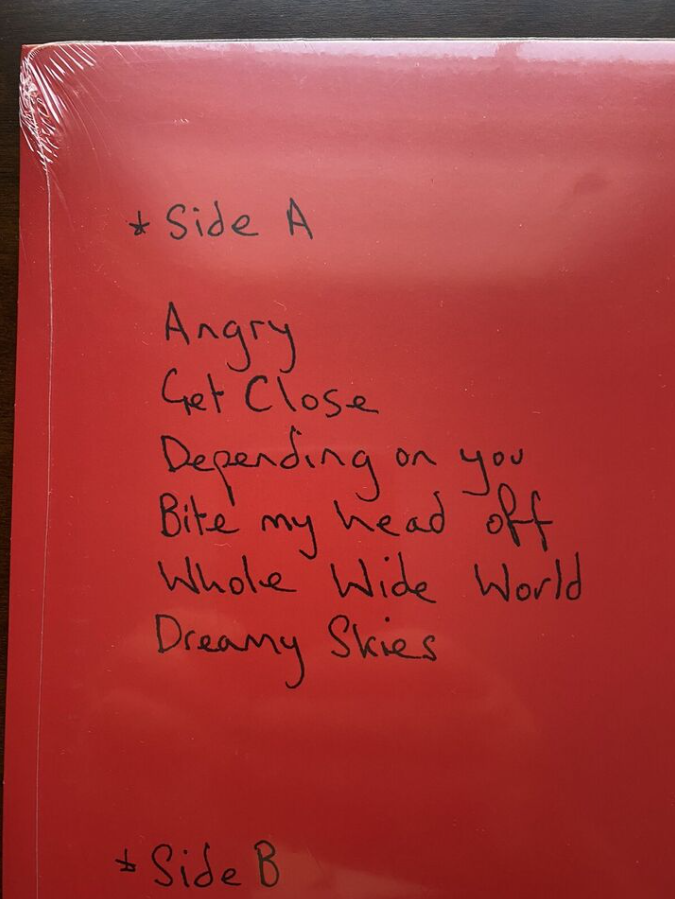 * Side A
Angry
Get Close
Depending on you
Bite my head off
Whole Wide World
Dreamy Skies
* Side B